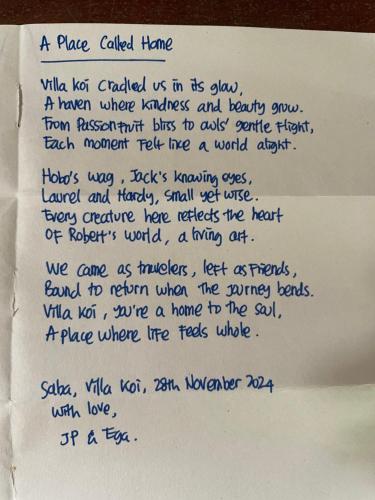 A Place Called Home
Villa Koi cradled us in its glow,
A haven where kindness and beauty grow.
From Passionfruit bliss to owls' gentle flight,
Each moment felt like a world alight.
Hobo's wag, Jack's knowing eyes,
Laurel and Hardy, small yet wise.
Every creature here reflects the heart
Of Robert's world, a living art.
We came as travelers, left as friends,
Bound to return when the journey bends.
Villa Koi, you're a home to the soul,
A place where life feels whole.
Saba, Villa Koi, 28th November 2024
With love,
JP & Ega.